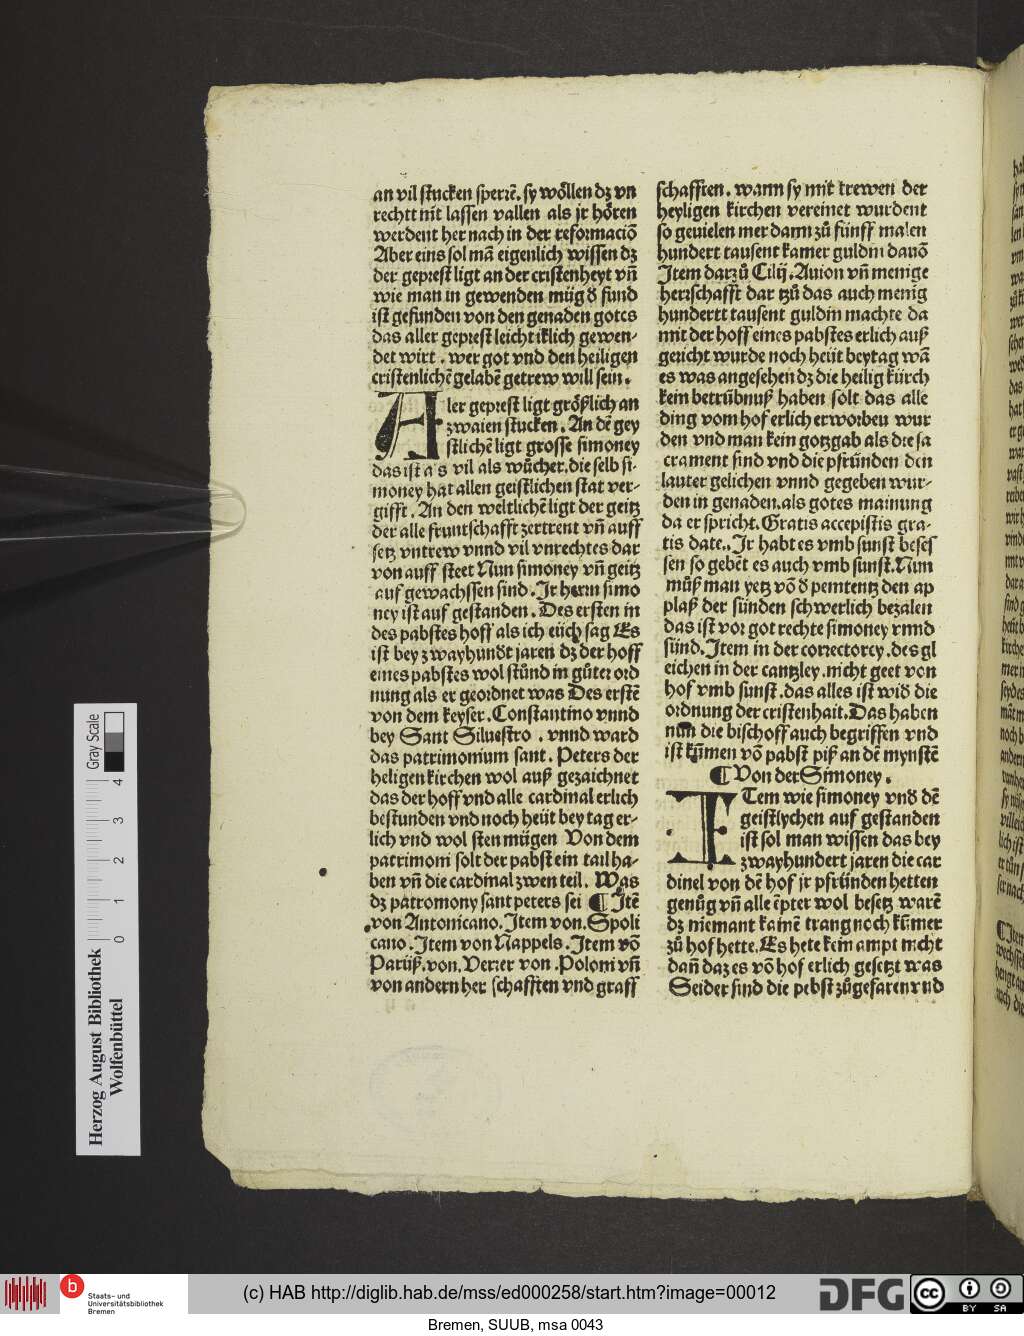 an vil stucken sperrē. sy wöllen dz vn
rechtt nit lassen vallen als jr hören
werdent her nach in der reformaciō
Aber eins sol mā eigenlich wissen dz
der geprest ligt an der cristenheyt vn̄
wie man in gewenden müg ð fund
ist gefunden von den genaden gotes
das aller geprest leicht iklich gewen-
det wirt . wer got vnd den heiligen
cristenlichē gelabē getrew will sein .
Aler geprest ligt gröszlich an
zwaien stucken . An dē gey
stlichē ligt grosse simoney
das ist a s vil als wůcher. die selb si-
money hat allen geistlichen stat ver-
gifft . An den weltlichē ligt der geitz
der alle fruntschafft zertrent vn̄ auff
setz vntrew vnnd vil vnrechtes dar
von auff steet Nun simoney vn̄ geitz
auf gewachssen sind . Jr herrn simo
ney ist auf gestanden . Des ersten in
des pabstes hoff als ich eüch sag Es
ist bey zwayhundt jaren dz der hoff
eines pabstes wol stůnd in gůter ord
nung als er geordnet was Des erstē
von dem keyser . Constantino vnnd
bey Sant Siluestro . vnnd ward
das patrimonium sant . Peters der
heligen kirchen wol ausz gezaichnet
das der hoff vnd alle cardinal erlich
bestunden vnd noch heüt bey tag er-
lich vnd wol sten mügen Von dem
patrimoni solt der pabst ein tail ha-
ben vn̄ die cardinal zwen teil . Was
dz patromony sant peters sei ¶ Jtē
von Antonicano . Jtem von . Spoli
cano . Jtem von Nappels . Jtem vō
Parüsz . von . Verner von . Poloni vn̄
von andern her schafften vnd graff
schafften . wann sy mit trewen der
heyligen kirchen vereinet wurdent
so geuielen mer dann zů fünff malen
hundert tausent kamer guldin dauō
Jtem darzů Cilij . Auion vn̄ menige
herrschafft dar tzů das auch menig
hundertt tausent guldin machte da
mit der hoff eines pabstes erlich ausz
gericht wurde noch heüt beytag wā
es was angesehen dz die heilig kürch
kein betrübnusz haben solt das alle
ding vom hof erlich erworben wur
den vnd man kein gotzgab als die sa
crament sind vnd die pfründen den
lauter gelichen vnnd gegeben wur-
den in genaden. als gotes mainung
da er spricht. Gratis accepistis gra-
tis date.. Jr habt es vmb sunst beses
sen so gebēt es auch vmb sunst. Nun
můsz man yetz vō ð penitentz den ap
plasz der sünden schwerlich bezalen
das ist vor got rechte simoney vnnd
sünd. Jtem in der correctorey . des gl
eichen in der cantzley . nicht geet von
hof vmb sunst . das alles ist wið die
ordnung der cristenhait. Das haben
nun die bischoff auch begriffen vnd
ist kūmen vō pabst pisz an dē mynstē
¶ Von der Simoney .
ITem wie simoney vnð dē
geistlychen auf gestanden
ist sol man wissen das bey
zwayhundert jaren die car
dinel von dē hof jr pfründen hetten
genůg vn̄ alle epter wol besetz warē
dz niemant kainē trang noch kūmer
zů hof hette. Es hete kein ampt nicht
dan̄ daz es vō hof erlich gesetzt was
Seider sind die pebst zůgefaren vnd
Gray Scale
0 1 2 3 4
Herzog August Bibliothek
Wolfenbüttel
b
Staats- und
Universitätsbibliothek
Bremen
(c) HAB http://diglib.hab.de/mss/ed000258/start.htm?image=00012
DFG
cc
BY SA
Bremen, SUUB, msa 0043